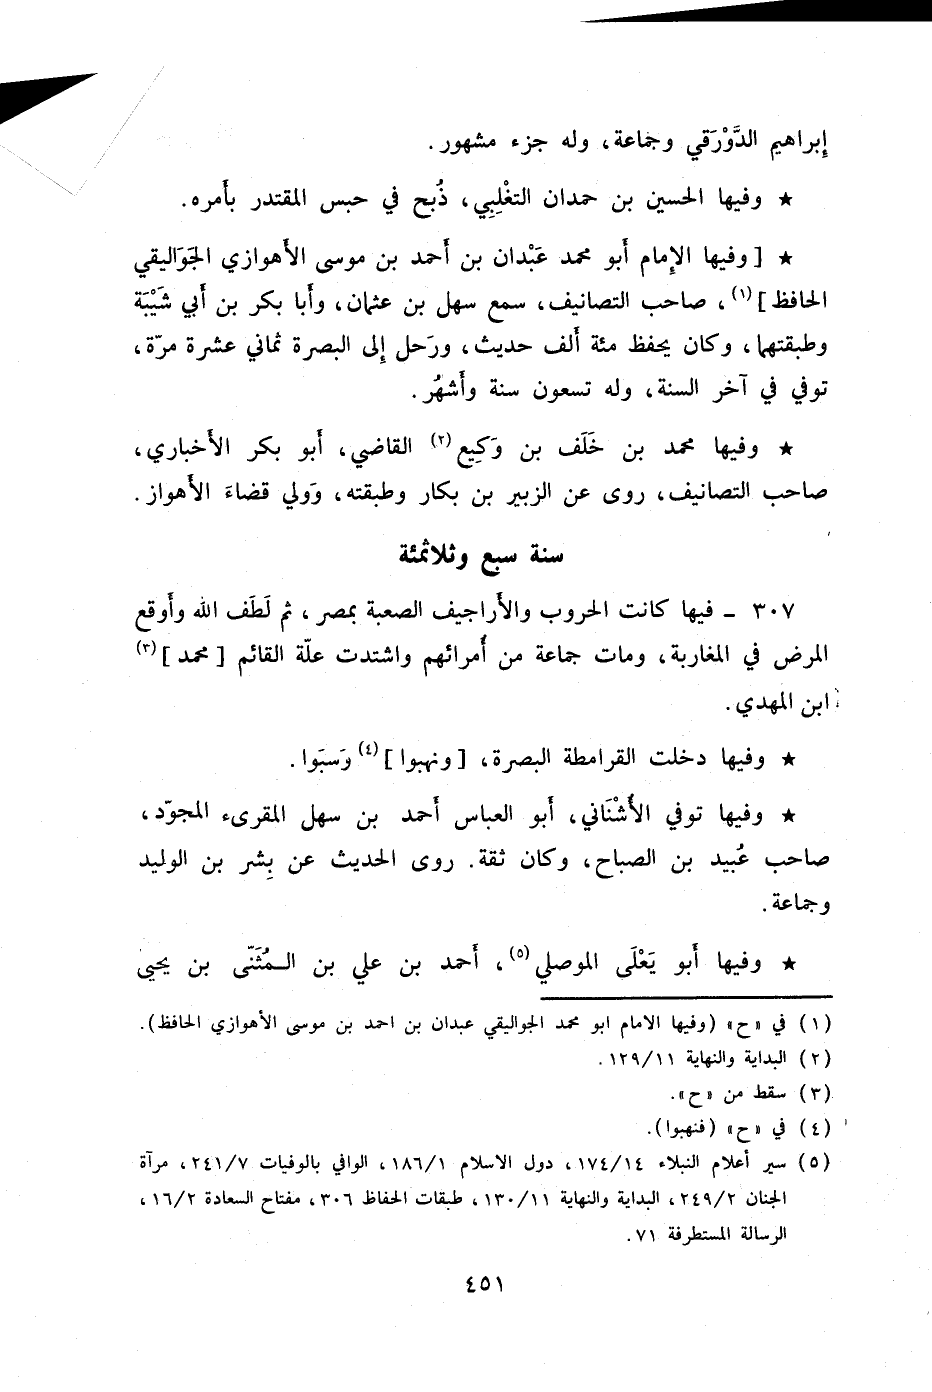 إبراهيم الدَّوْرَقي وجماعة، وله جزء مشهور.
★ وفيها الحسين بن حمدان التغْلِبي، ذُبح في حبس المقتدر بأَمره.
★ [ وفيها الإِمام أَبو محمد عَبْدان بن أَحمد بن موسى الأَهوازي الجَوَاليقي
الحافظ ](١)، صاحب التصانيف، سمع سهل بن عثمان، وأَبا بكر بن أَبي شَيْبَة
وطبقتهما، وكان يحفظ مئة أَلف حديث، ورَحل إِلى البصرة ثماني عشرة مرّة،
توفي في آخر السنة، وله تسعون سنة وأَشهُر.
★ وفيها محمد بن خَلَف بن وَكِيع(٢) القاضي، أَبو بكر الأَخباري،
صاحب التصانيف، روى عن الزبير بن بكار وطبقته، وَولي قضاءَ الأَهواز.
سنة سبع وثلاثمئة
٣٠٧ ـ فيها كانت الحروب والأَراجيف الصعبة بمصر، ثم لَطَف الله وأَوقع
المرض في المغاربة، ومات جماعة من أُمرائهم واشتدت علّة القائم [ محمد ](٣)
ابن المهدي.
★ وفيها دخلت القرامطة البصرة، [ ونهبوا ](٤) وَسبَوا.
★ وفيها توفي الأُشْنَاني، أَبو العباس أَحمد بن سهل المقرىء المجوّد،
صاحب عُبيد بن الصباح، وكان ثقة. روى الحديث عن بِشر بن الوليد
وجماعة.
★ وفيها أَبو يَعْلَى الموصلي(٥)، أَحمد بن علي بن المُثَنّى بن يحيى
(١) في «ح» (وفيها الامام ابو محمد الجواليقي عبدان بن احمد بن موسى الأهوازي الحافظ).
(٢) البداية والنهاية ١٢٩/١١.
(٣) سقط من «ح».
(٤) في «ح» (فنهبوا).
(٥) سير أعلام النبلاء ١٧٤/١٤، دول الاسلام ١٨٦/١، الوافي بالوفيات ٢٤١/٧، مرآة
الجنان ٢٤٩/٢، البداية والنهاية ١٣٠/١١، طبقات الحفاظ ٣٠٦، مفتاح السعادة ١٦/٢،
الرسالة المستطرفة ٧١.
٤٥١